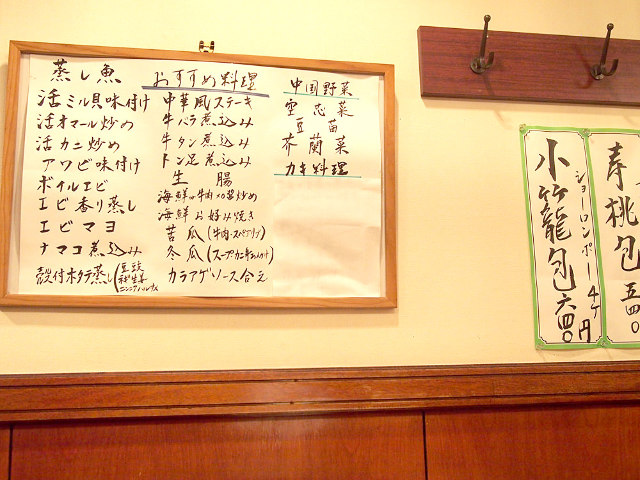 蒸し魚
活ミル貝味付け
活オマール炒め
活カニ炒め
アワビ味付け
ボイルエビ
エビ香り蒸し
エビマヨ
ナマコ煮込み
殻付ホタテ蒸し
おすすめ料理
中華風ステーキ
牛バラ煮込み
牛タン煮込み
トン足煮込み
生腸
海鮮or牛肉XO醤炒め
海鮮お好み焼き
苦瓜(牛肉・スペアリブ)
冬瓜
カラアゲソース合え
中国野菜
空芯菜
豆苗
芥蘭菜
カキ料理
小竹籠包
ショーロンポー4ケ
六四0円
寿桃包
五四0